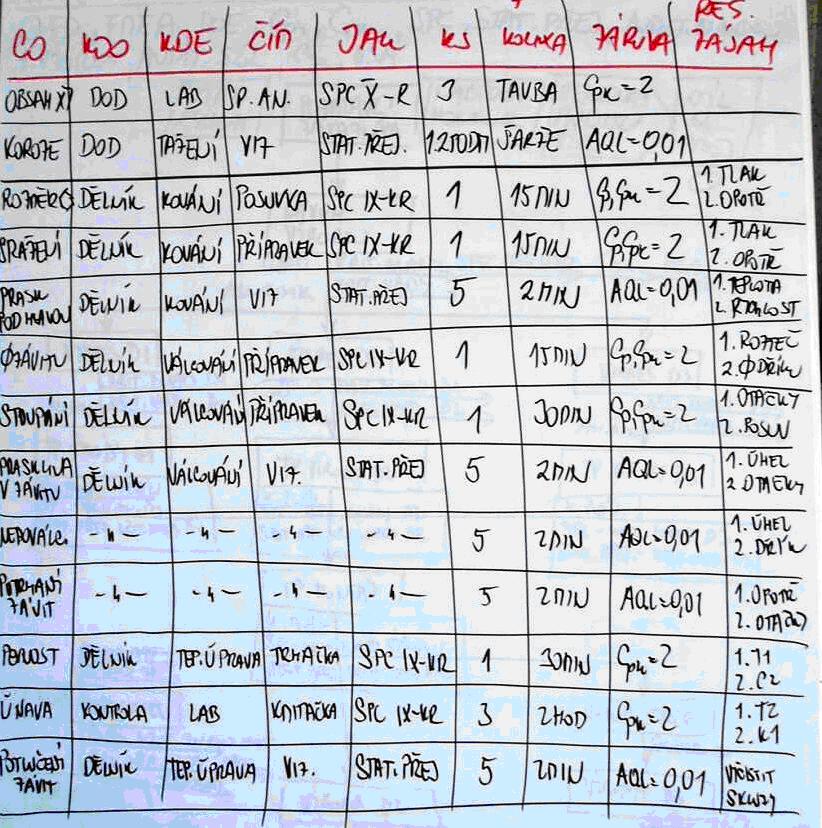 CO KDO KDE ČÍM JAK KS KOLIKA ZÁRUKA RES. ZÁSAH
OBSAH X? DOD LAB SP. AN. SPC X̄-R 3 TAVBA Cpk=2
KOROZE DOD TAŽENÍ VIZ STAT. PŘEJ. ŠARŽE AQL=0,01
ROZMĚRY DĚLNÍK KOVÁNÍ POSUVKA SPC IX-KR 1 15 MIN Cp,Cpk=2 1. TLAK 2. OPOTŘ
SRAŽENÍ DĚLNÍK KOVÁNÍ PŘÍPRAVEK SPC IX-KR 1 15 MIN Cp,Cpk=2 1. TLAK 2. OPOTŘ
PRASK POD HLAVOU DĚLNÍK KOVÁNÍ VIZ STAT. PŘEJ 5 2 MIN AQL=0,01 1. TEPLOTA 2. RYCHLOST
ØZÁVITU DĚLNÍK VÁLCOVÁNÍ PŘÍPRAVEK SPC IX-KR 1 15 MIN Cp,Cpk=2 1. ROZTEČ 2. Ø DŘÍKU
STOUPÁNÍ DĚLNÍK VÁLCOVÁNÍ PŘÍPRAVEK SPC IX-KR 1 30 MIN Cp,Cpk=2 1. OTÁČKY 2. POSUV
PRASKLINA V ZÁVITU DĚLNÍK VÁLCOVÁNÍ VIZ. STAT. PŘEJ 5 2 MIN AQL=0,01 1. ÚHEL 2. OTÁČKY
NEDOVÁLC. -"- -"- -"- -"- 5 2 MIN AQL=0,01 1. ÚHEL 2. DŘÍK
POTRHANÝ ZÁVIT -"- -"- -"- -"- 5 2 MIN AQL=0,01 1. OPOTŘ 2. OTÁČKY
PEVNOST DĚLNÍK TEP. ÚPRAVA TRHAČKA SPC IX-KR 1 30 MIN Cpk=2 1. T1 2. C2
ÚNAVA KONTROLA LAB KMITAČKA SPC IX-KR 3 2 HOD Cpk=2 1. T2 2. K1
POTLUČENÝ ZÁVIT DĚLNÍK TEP. ÚPRAVA VIZ. STAT. PŘEJ 5 2 MIN AQL=0,01 VYČISTIT SKLUZY